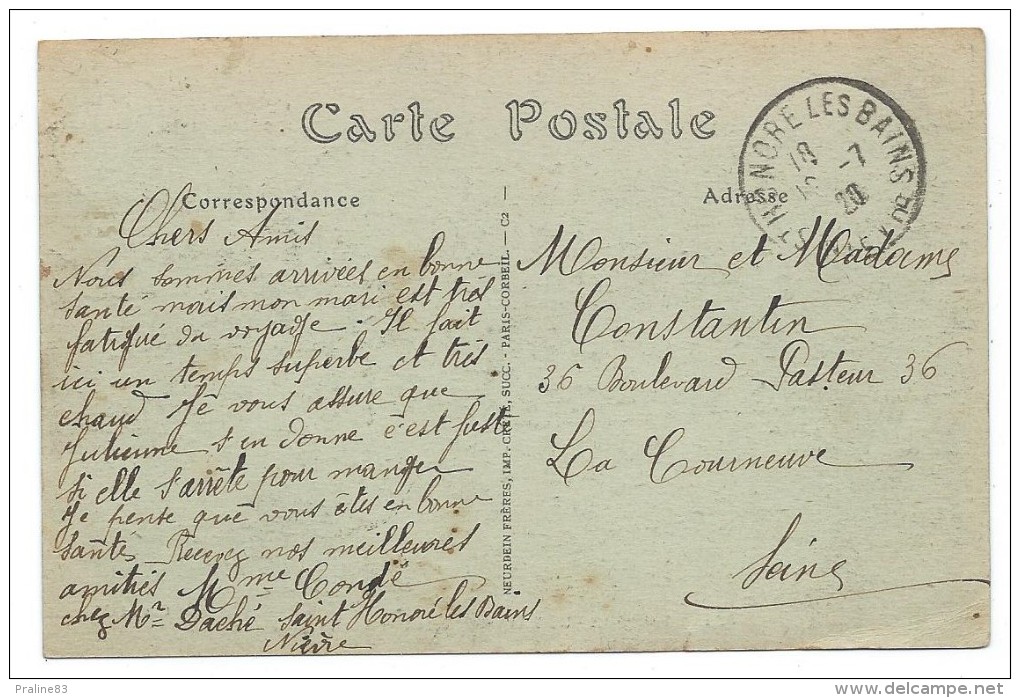 Carte Postale
Correspondance
Chers Amis
Nous sommes arrivées en bonne
santé mais mon mari est très
fatigué du voyage. Il fait
ici un temps superbe et très
chaud Je vous assure que
Julienne s'en donne c'est juste
si elle s'arrête pour manger
Je pense que vous êtes en bonne
santé Recevez nos meilleures
amitiés Mme Condé
chez Mr Daché Saint Honoré les Bains
Nièvre
NEURDEIN FRÈRES, IMP. CRÉTÉ, SUCC. - PARIS-CORBEIL. — C2 —
Adresse
ST HONORE LES BAINS
18 -7
20
Monsieur et Madame
Constantin
36 Boulevard Pasteur 36
La Courneuve
Seine
Praline83
http://www.delcampe.net